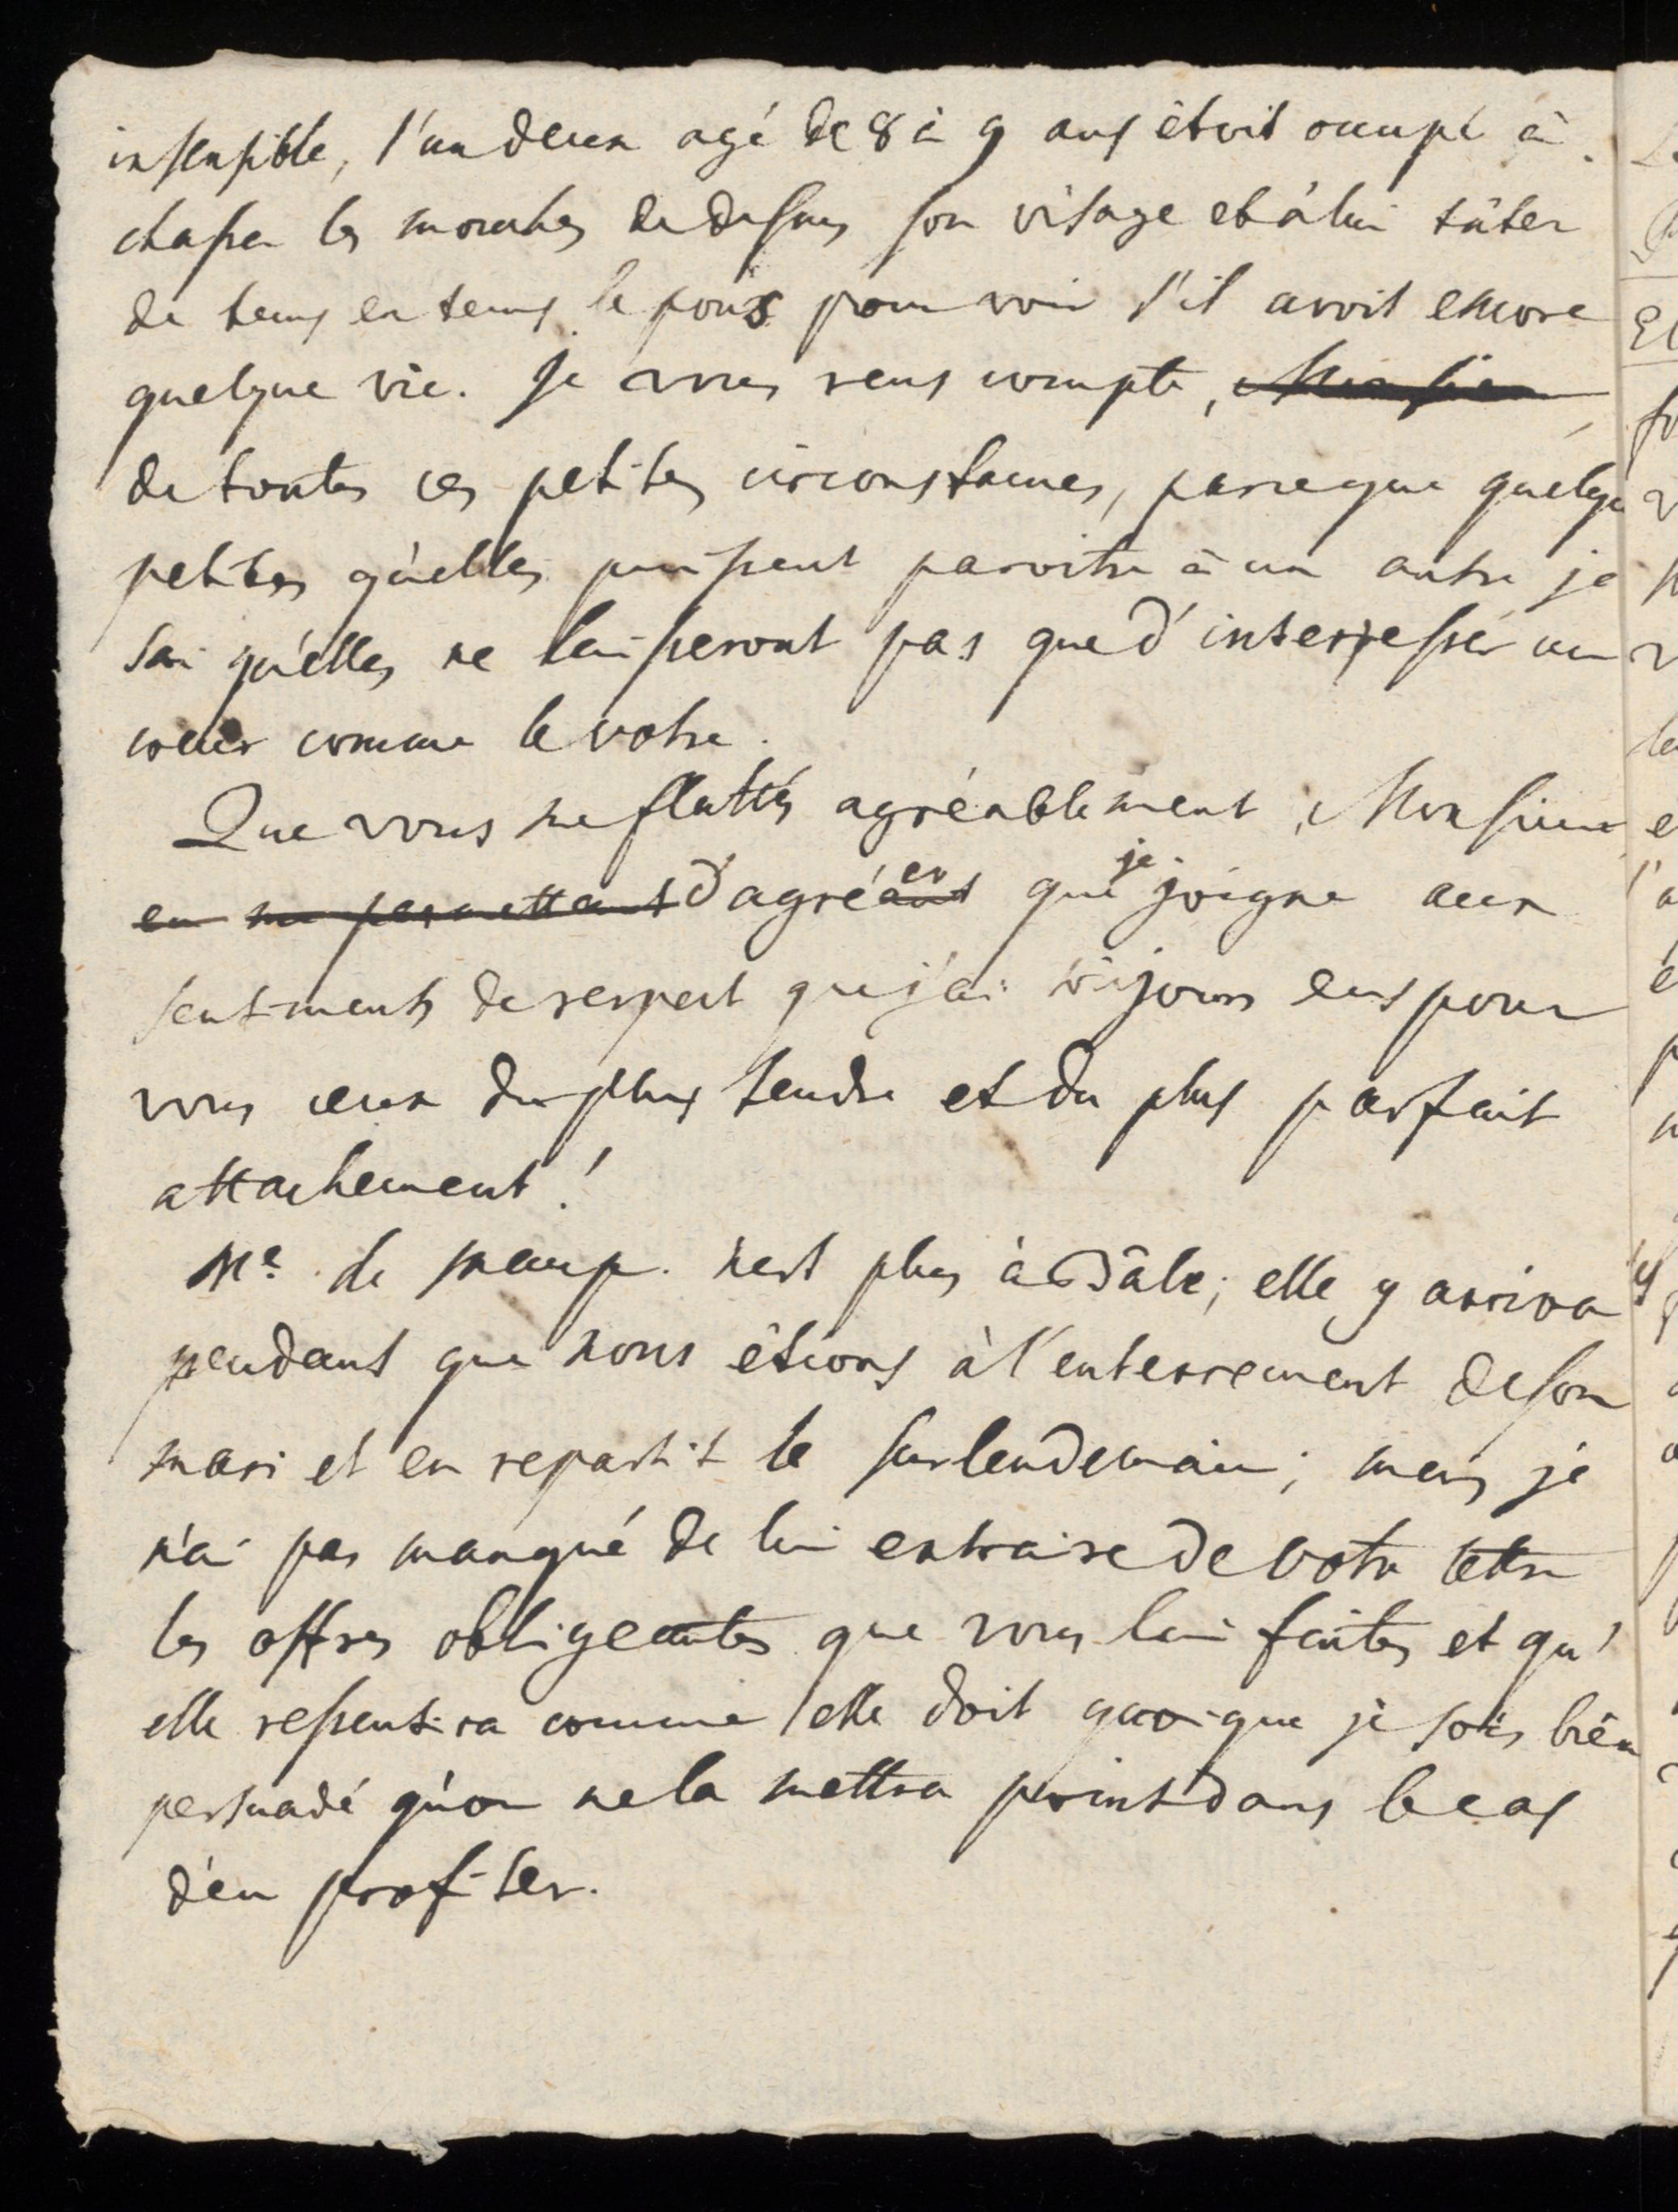 insensible, l'un deux agé de 8 à 9 ans étoit occupé à
chasser les mouches de dessus son visage et à lui tâter
de tems en tems le pous pour voir s'il avoit encore
quelque vie. Je vous rens compte, Monsieur
de toutes ces petites circonstances, parceque quelqu
petites qu'elles puissent paroitre à un autre je
sai qu'elles ne laisseront pas que d'interresser un
coeur comme le votre.
Que vous me flattés agréablement, Monsieur
en me permettant d'agréant er que je joigne aux
sentiments de respect que j'ai toûjours eus pour
vous ceux du plus tendre et du plus parfait
attachement!
Me. de Maup. n'est plus à Bâle; elle y arriva
pendant que nous étions à l'enterrement de son
mari et en repartit le surlendemain; mais je
n'ai pas manqué de lui extraire de votre lettre
les offres obligeantes que vous lui faites et qu'
elle ressentira comme elle doit quoique je sois bien
persuadé qu'on ne la mettra point dans le cas
d'en profiter.